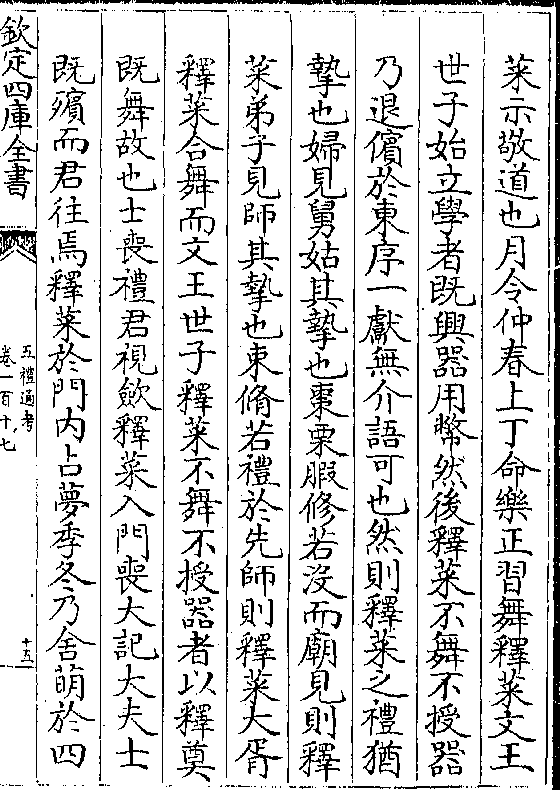 菜示敬道也月令仲春上丁命樂正習舞釋菜文王
世子始立學者既興器用幣然後釋菜不舞不授器
乃退儐於東序一獻無介語可也然則釋菜之禮猶
摯也婦見舅姑其摯也棗栗腶修若沒而廟見則釋
菜弟子見師其摯也束脩若禮於先師則釋菜大胥
釋菜合舞而文王世子釋菜不舞不授器者以釋奠
既舞故也士喪禮君視斂釋菜入門喪大記大夫士
既殯而君往焉釋菜於門内占夢季冬乃舍萌於四
欽定四庫全書
五禮通考
卷一百十七
十五